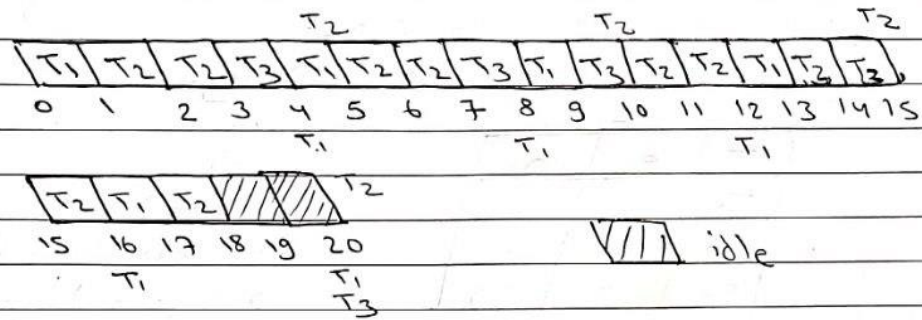 T₂ T₂ T₂
T₁ T₂ T₂ T₃ T₁ T₂ T₂ T₃ T₁ T₃ T₂ T₂ T₁ T₂ T₃
0 1 2 3 4 5 6 7 8 9 10 11 12 13 14 15
T₁ T₁ T₁
T₂ T₁ T₂ T₂
15 16 17 18 19 20 idle
T₁ T₁
T₃